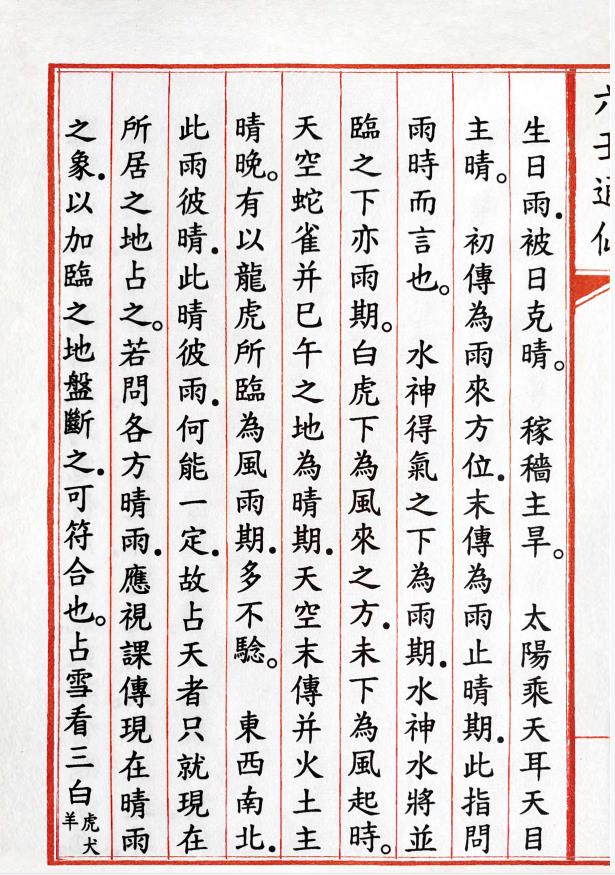 六壬通
生日雨．被日克晴。　稼穡主旱。　太陽乘天耳天目
主晴。　初傳為雨來方位．末傳為雨止晴期．此指問
雨時而言也。　水神得氣之下為雨期．水神水將並
臨之下亦雨期。白虎下為風來之方．未下為風起時。
天空蛇雀并巳午之地為晴期．天空末傳并火土主
晴晚。有以龍虎所臨為風雨期．多不騐。　東西南北．
此雨彼晴．此晴彼雨．何能一定．故占天者只就現在
所居之地占之。若問各方晴雨．應視課傳現在晴雨
之象．以加臨之地盤斷之．可符合也。占雪看三白虎犬羊